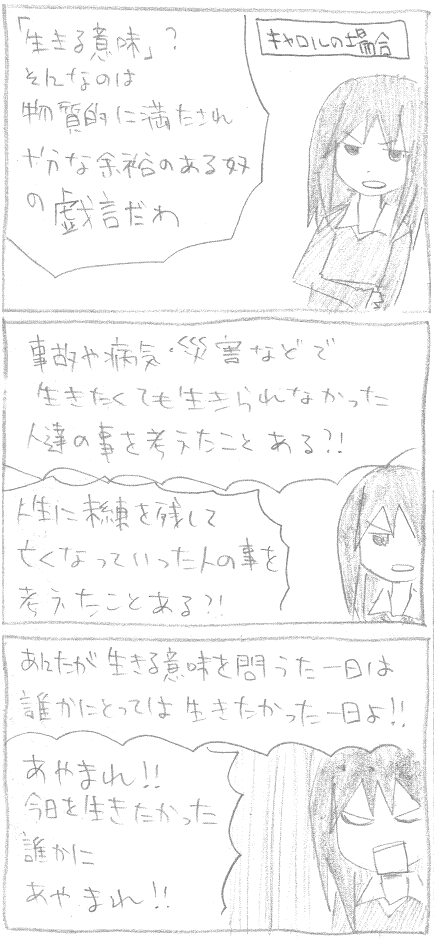 キャロルの場合
「生きる意味」?
そんなのは
物質的に満たされ
十分な余裕のある奴
の戯言だわ
事故や病気・災害などで
生きたくても生きられなかった
人達の事を考えたことある?!
人生に未練を残して
亡くなっていった人の事を
考えたことある?!
あんたが生きる意味を問うた一日は
誰かにとっては生きたかった一日よ!!
あやまれ!!
今日を生きたかった
誰かに
あやまれ!!